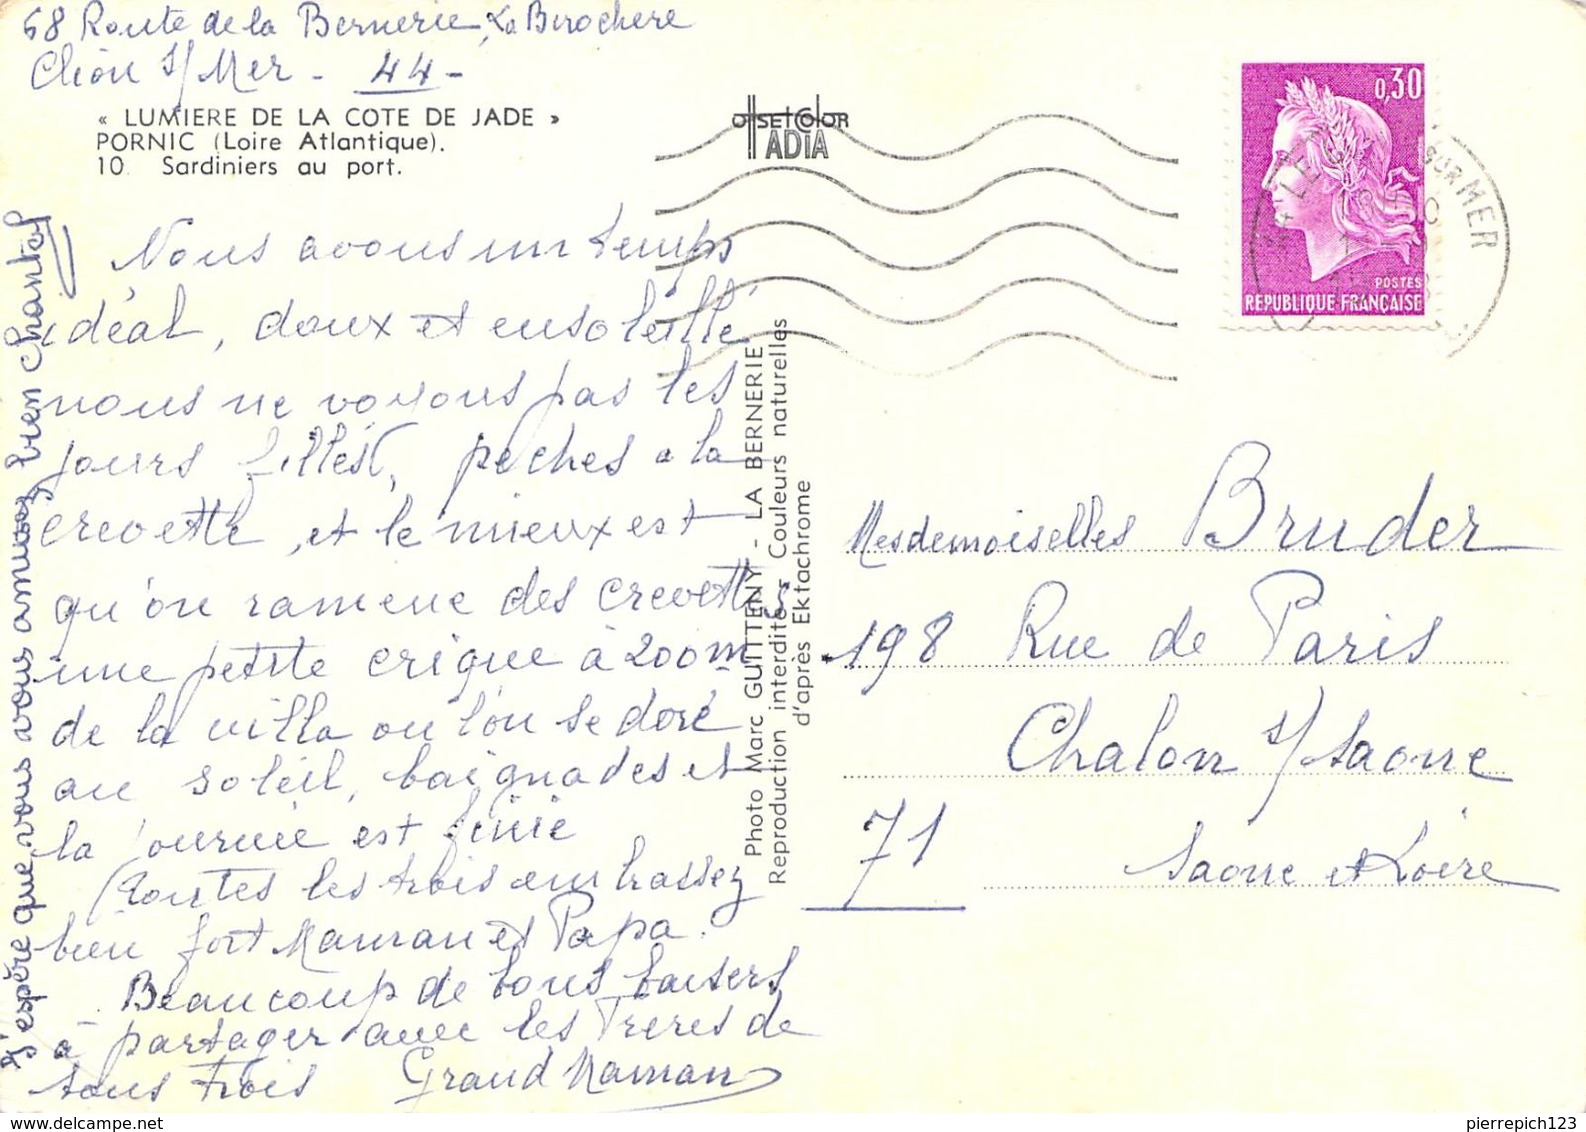 68 Route de la Bernerie, La Birochere
Clion s/ Mer - 44 -
« LUMIERE DE LA COTE DE JADE »
PORNIC (Loire Atlantique).
10. Sardiniers au port.
offset color
ADIA
0,30
POSTES
REPUBLIQUE FRANÇAISE
SUR MER
Nous avons un temps
idéal, doux et ensoleillé
nous ne voyons pas les
jours filles, peches a la
crevette, et le mieux est
qu'on ramene des crevettes
une petite crique à 200m
de la villa ou l'on se dore
au soleil, baignades et
la journée est finie
Toutes les trois embrassez
bien fort Maman et Papa.
Beaucoup de bons baisers
à partager avec les Freres de
tous trois Grand Maman
J'espère que vous vous amusez bien Chantal
Photo Marc GUITTENY - LA BERNERIE
Reproduction interdite - Couleurs naturelles
d'après Ektachrome
Mesdemoiselles Bruder
198 Rue de Paris
Chalon s/ Saone
71 Saone et Loire
pierrepich123